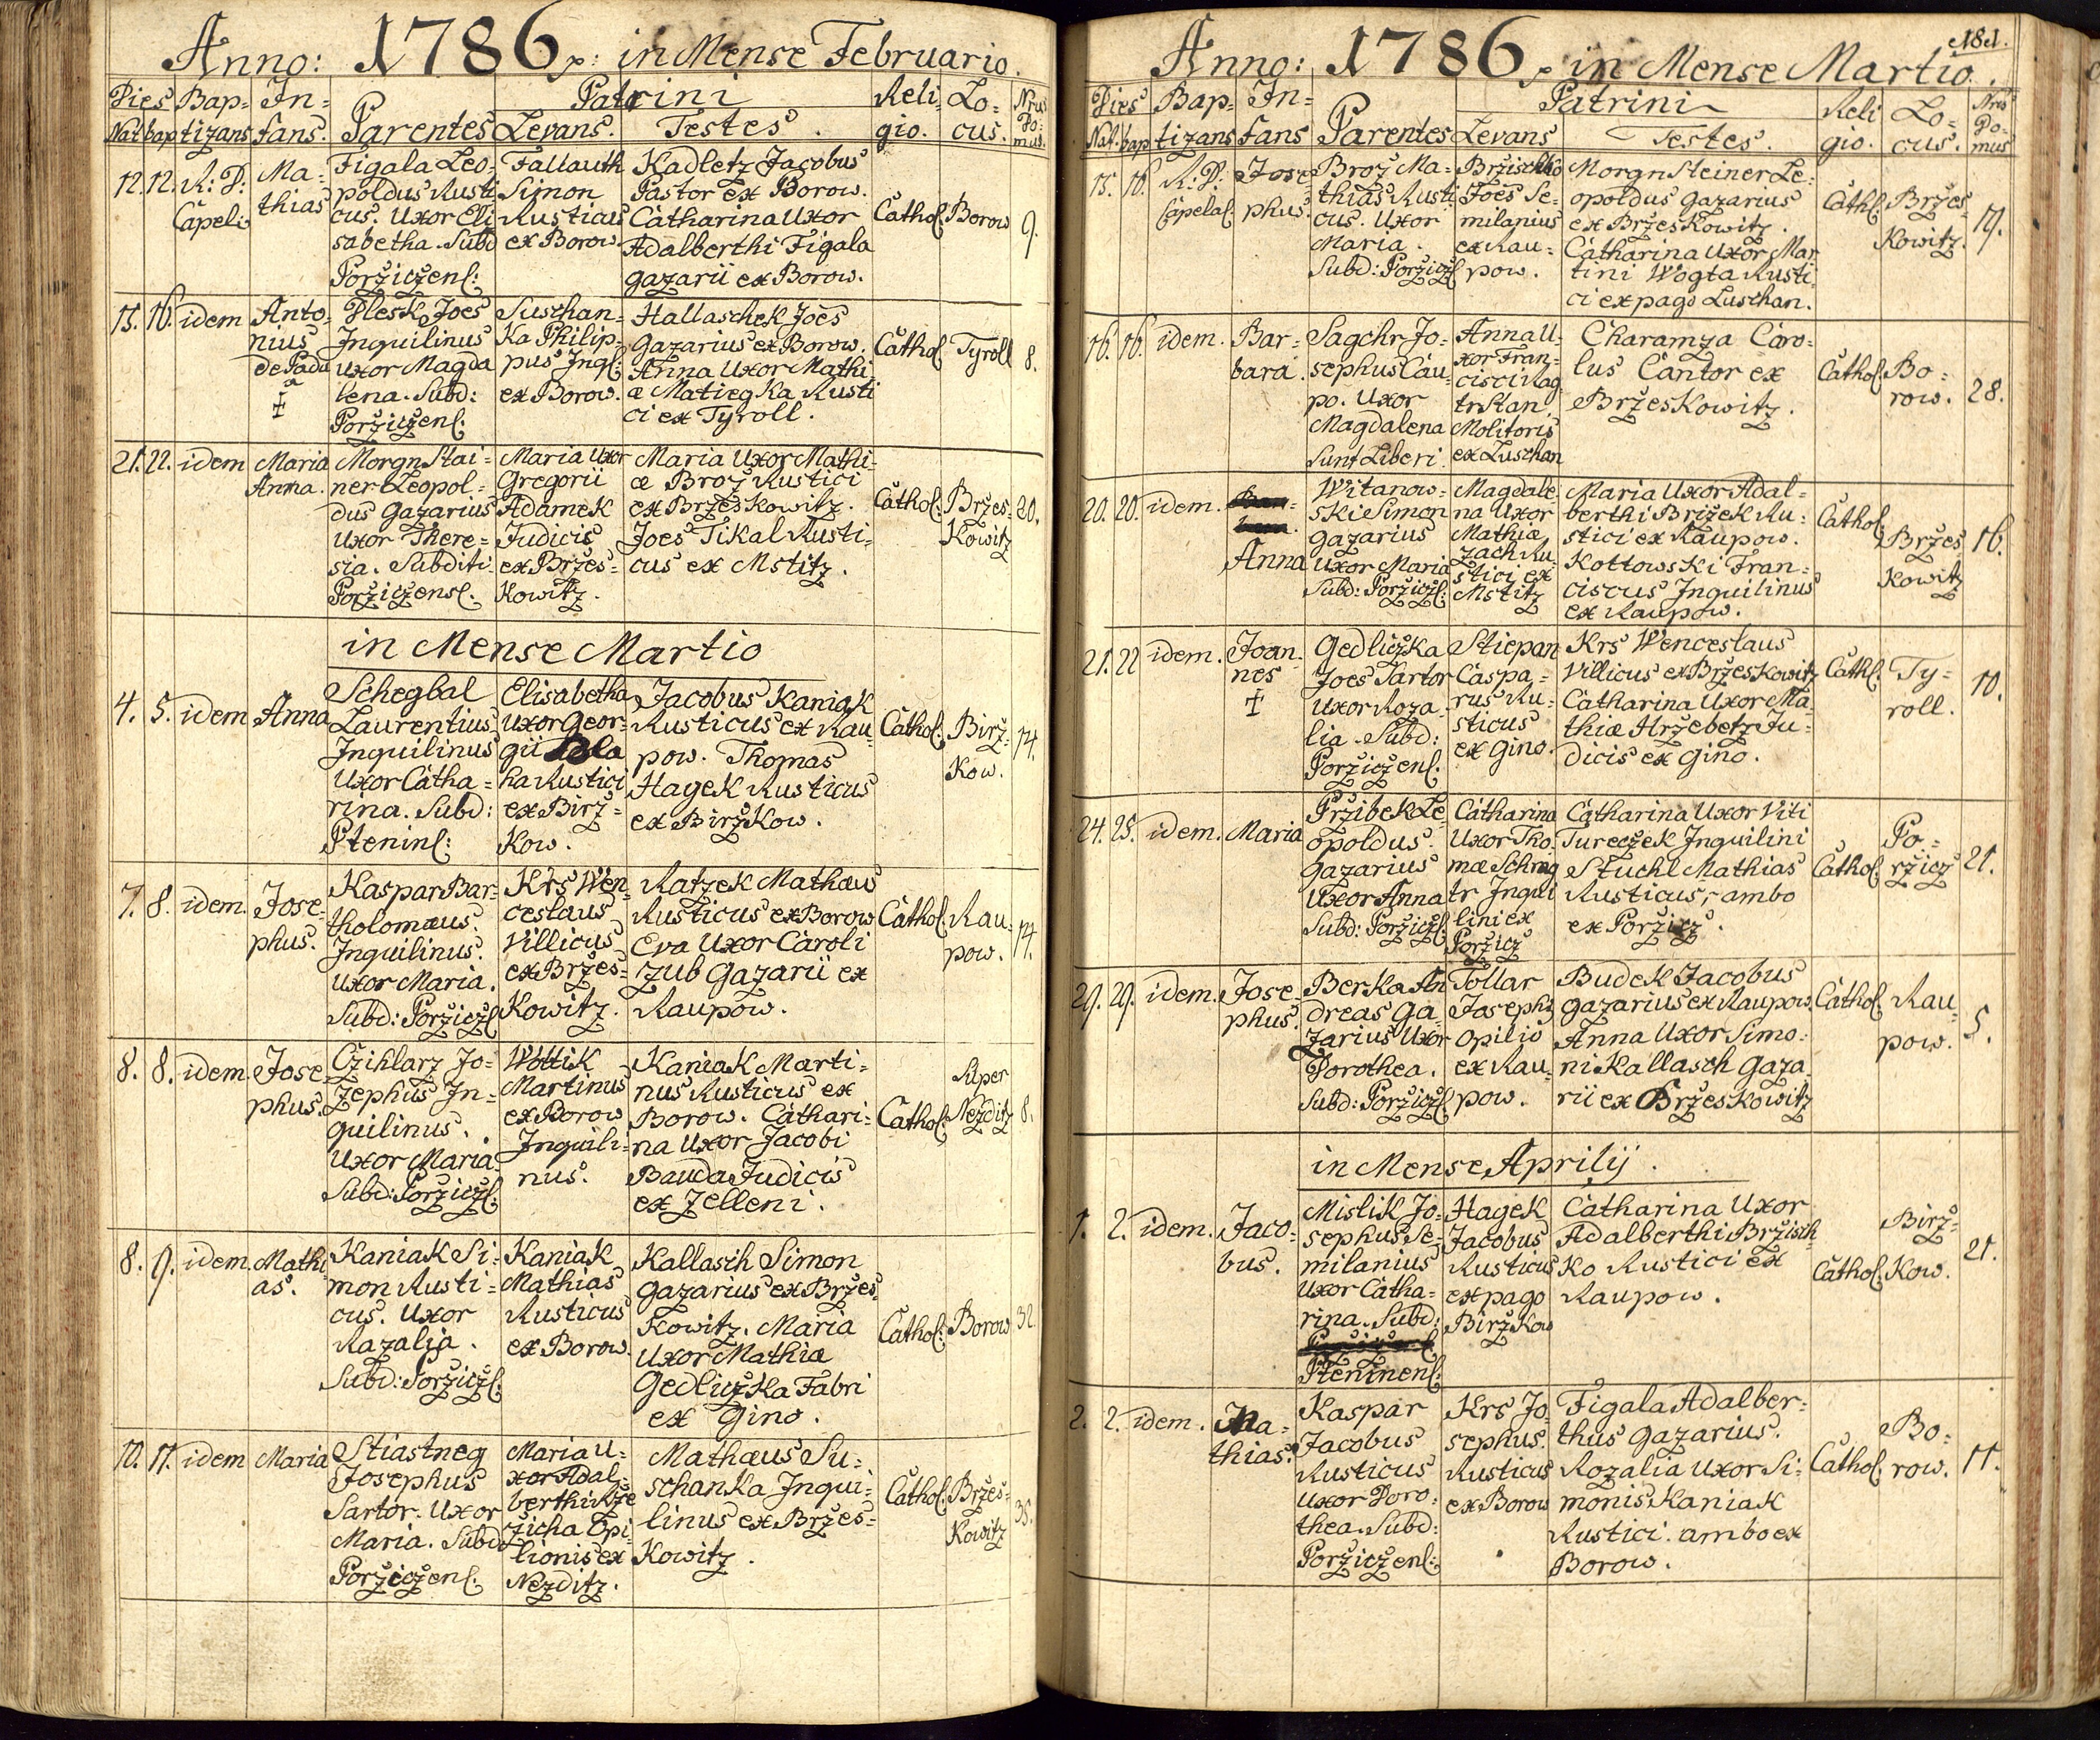 Anno: 1786 in Mense Februario.
Dies Bap= In= Parentes Patrini Reli Lo= Nrus
Nat bap tizans fans. Levans. Testes. gio. cus. Do: mus.
12. 12. R: D:
Capel:
Ma=
thias
Figala Leo,
poldus Rusti
cus. Uxor Eli
sabetha. Subd
Poržiczenl:
Fallauth
Simon
Rusticus
ex Borow.
Kadletz Jacobus
Pastor ex Borow.
Catharina Uxor
Adalberthi Figala
gazarii ex Borow.
Cathol. Borow 9.
15. 16. idem
Anto=
nius
de Padu
a
Plesk Joes
Inquilinus
uxor Magda
lena. Subd:
Poržiczenl:
Suschan=
Ka Philip=
pus Ingl:
ex Borow.
Hallaschek Joes
gazarius ex Borow.
Anna Uxor Mathi
æ Matiegka Rusti
ci ex Tyroll.
Cathol. Tyroll 8.
21. 22. idem
Maria
Anna.
Morgn Stai=
ner Leopol=
dus gazarius
Uxor There=
sia. Subditi
Poržiczensl.
Maria Uxor
Gregorii
Adamek
Judicis
ex Bržes=
Kowitz.
Maria Uxor Mathi=
æ Broz Rustici
ex Bržeskowitz.
Joes Tikal Rusti=
cus ex Mstitz.
Cathol: Bržes=
Kowitz
20.
in Mense Martio
4. 5. idem Anna
Schegbal
Laurentius
Inquilinus
Uxor Catha=
rina. Subd:
Pteninl:
Elisabetha
Uxor Geor=
gii
ha Rustici
ex Birž=
Kow.
Jacobus Kaniak
Rusticus ex Rau=
pow. Thomas
Hagek Rusticus
ex Biržkow.
Cathol: Birž=
Kow.
14.
7. 8. idem.
Jose=
phus.
Kaspar Bar=
tholomæus.
Inquilinus.
Uxor Maria.
Subd: Poržiczl
Krs Wen
ceslaus
Villicus
ex Bržes=
Kowitz.
Ratzek Mathæus
Rusticus ex Borow
Eva Uxor Caroli
Zub gazarii ex
Raupow.
Cathol. Rau=
pow.
14.
8. 8. idem.
Jose=
phus.
Czihlarz Jo=
zephus In=
quilinus.
Uxor Maria.
Subd: Poržiczl:
Wottik
Martinus
ex Borow
Inquili=
nus.
Kaniak Marti=
nus Rusticus ex
Borow. Cathari=
na Uxor Jacobi
Bauda Judicis
ex Zelleni.
Cathol: Super
Nezditz
8.
8. 9. idem.
Mathi
as.
Kaniak Si=
mon Rusti=
cus. Uxor
Razalia.
Subd: Poržiczl:
Kaniak
Mathias
Rusticus
ex Borow.
Kallasch Simon
gazarius ex Bržes=
Kowitz. Maria
Uxor Mathiæ
Gedliczka Fabri
ex Gino.
Cathol: Borow 32.
10. 11. idem Maria
Stiastneg
Josephus
Sartor. Uxor
Maria. Subd
Poržiczenl.
Maria U=
xor Adal=
berthi Rže
zicha Opi
lionis ex
Nezditz.
Mathæus Su=
schanka Inqui=
linus ex Bržes=
Kowitz.
Cathol: Bržes=
Kowitz
35.
181.
Anno: 1786 in Mense Martio.
Dies Bap= In= Parentes Patrini Reli Lo= Nrus
Nat. bap tizans fans Levans Testes. gio. cus. Do= mus
15. 16. R. D.
Capelal.
Jose
phus.
Broz Ma=
thias Rusti
cus. Uxor
Maria.
Subd: Poržiczl
Bržischko
Joes Se=
milanius
ex Rau=
pow.
Morgn Steiner Le=
opoldus gazarius
ex Bržeskowitz.
Catharina Uxor Mar
tini Wogta Rusti=
ci ex pago Luschan.
Cathl: Bržes=
Kowitz.
19.
16. 16. idem.
Bar=
bara.
Sagchr Jo=
sephus Cau=
po. Uxor
Magdalena
Sunt Liberi.
Anna U=
xor Fran=
cisci Rag
tr Stan.
Molitoris
ex Luschan
Charamza Caro=
lus Cantor ex
Bržeskowitz.
Cathol: Bo=
row.
28.
20. 20. idem.
Anna
Witanow=
ski Simon
gazarius
Uxor Maria
Subd: Poržiczl:
Magdale
na Uxor
Mathiæ
Zach Ru
stici ex
Mstitz
Maria Uxor Adal=
berthi Brižek Ru=
stici ex Raupow.
Kottowski Fran=
ciscus Inquilinus
ex Raupow.
Cathol: Bržes
Kowitz
16.
21. 22 idem.
Joan=
nes
Gedliczka
Joes Sartor
Uxor Roza=
lia. Subd:
Poržiczenl.
Stiepan
Caspa=
rus Ru=
sticus
ex Gino.
Krs Wenceslaus
Villicus ex Bržeskowitz
Catharina Uxor Ma
thiæ Hržebetz Ju=
dicis ex Gino.
Cathl: Ty=
roll.
10.
24. 25. idem. Maria
Pržibek Le
opoldus.
gazarius
Uxor Anna
Subd: Poržiczl:
Catharina
Uxor Tho=
mæ Schrag
tr Inqui
lini ex
Poržicz
Catharina Uxor Viti
Tureczek Inquilini
Stuchl Mathias
Rusticus, ambo
ex Poržicz.
Cathol. Po=
ržicz
21.
29. 29. idem.
Jose=
phus.
Berka An
dreas Ga=
zarius Uxor
Dorothea.
Subd: Poržiczl
Tollar
Josephs
opilio
ex Rau=
pow.
Budek Jacobus
gazarius ex Raupow.
Anna Uxor Simo=
ni Kallasch gaza=
rii ex Bržeskowitz
Cathol. Rau=
pow.
5.
in Mense Aprilij.
1. 2. idem.
Jaco=
bus.
Mislik Jo=
sephus Se=
milanius
Uxor Catha=
rina. Subd:
Pteninenl:
Hagek
Jacobus
Rusticus
ex pago
Biržkow
Catharina Uxor
Adalberthi Bržisch=
ko Rustici ex
Raupow.
Cathol: Birž=
Kow.
21.
2. 2. idem.
Ma=
thias.
Kaspar
Jacobus
Rusticus
Uxor Doro=
thea. Subd:
Poržiczenl:
Krs Jo
sephus.
Rusticus
ex Borow
Figala Adalber=
thus gazarius.
Rozalia Uxor Si=
monis Kaniak
Rustici. ambo ex
Borow.
Cathol. Bo=
row.
11.